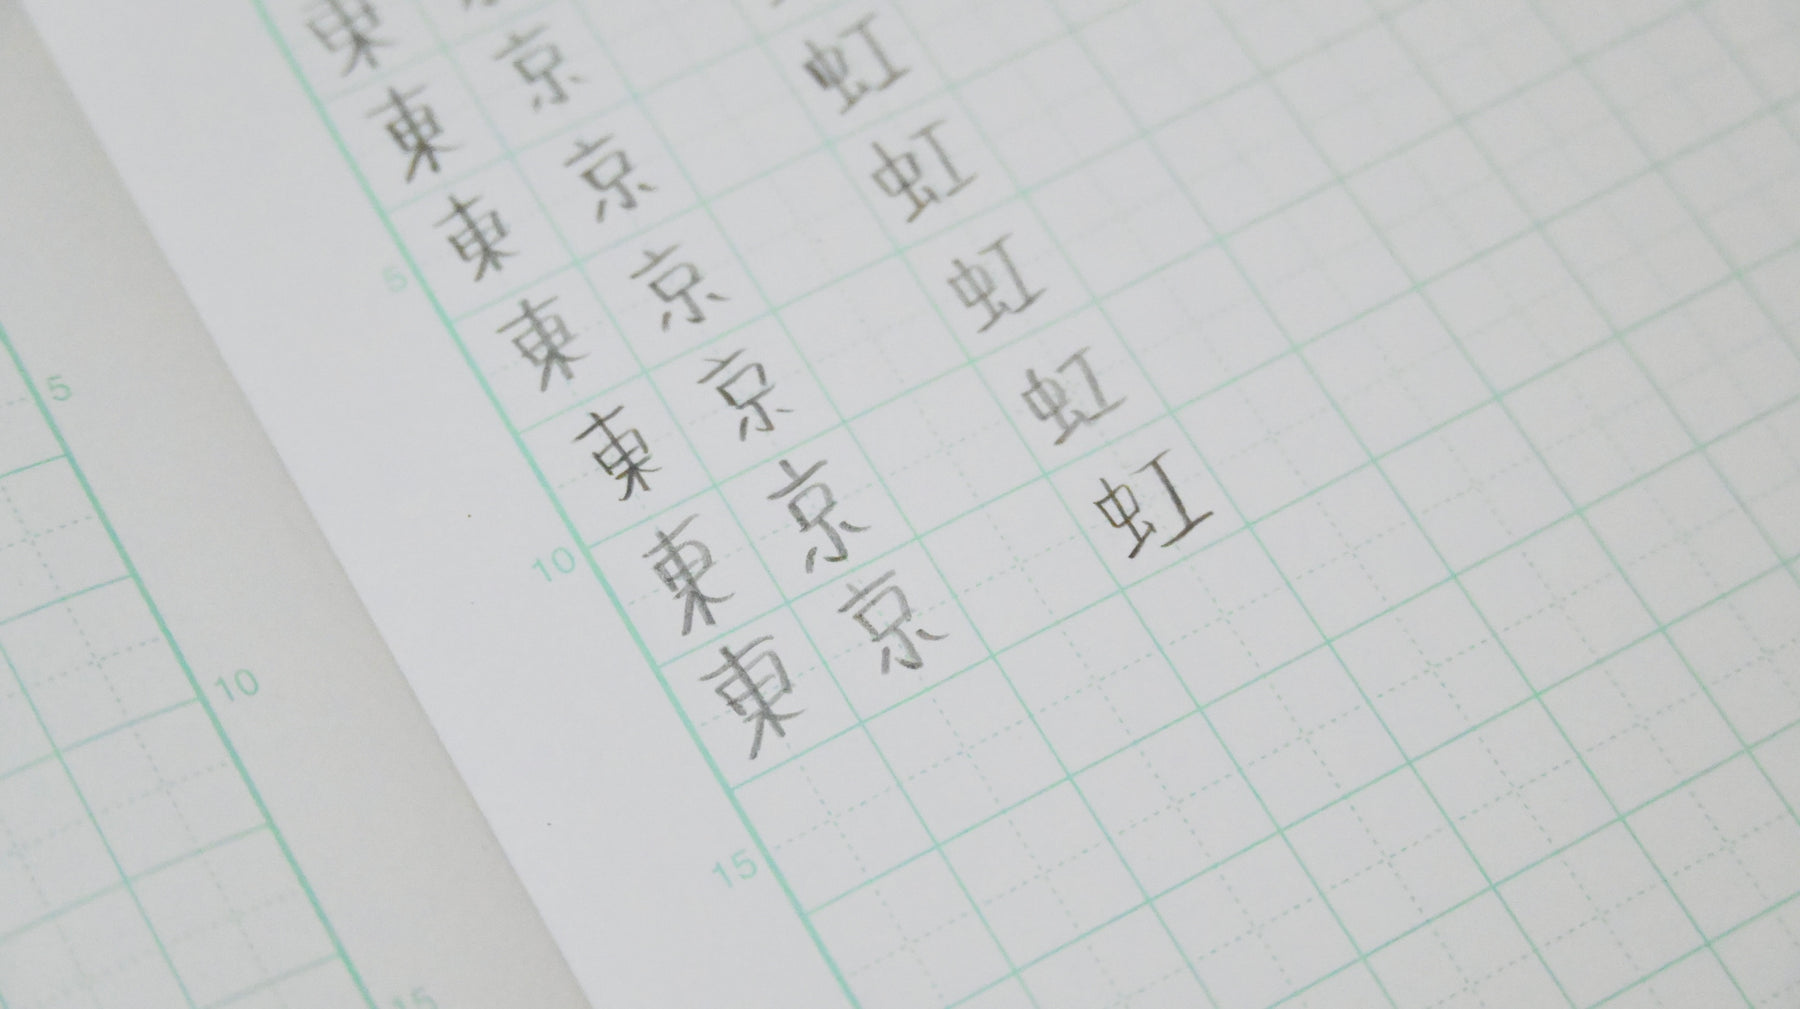 東
東京
東京 虹
東京 虹
5 東京 虹
東京 虹
東京 虹
5
10
10
15
15